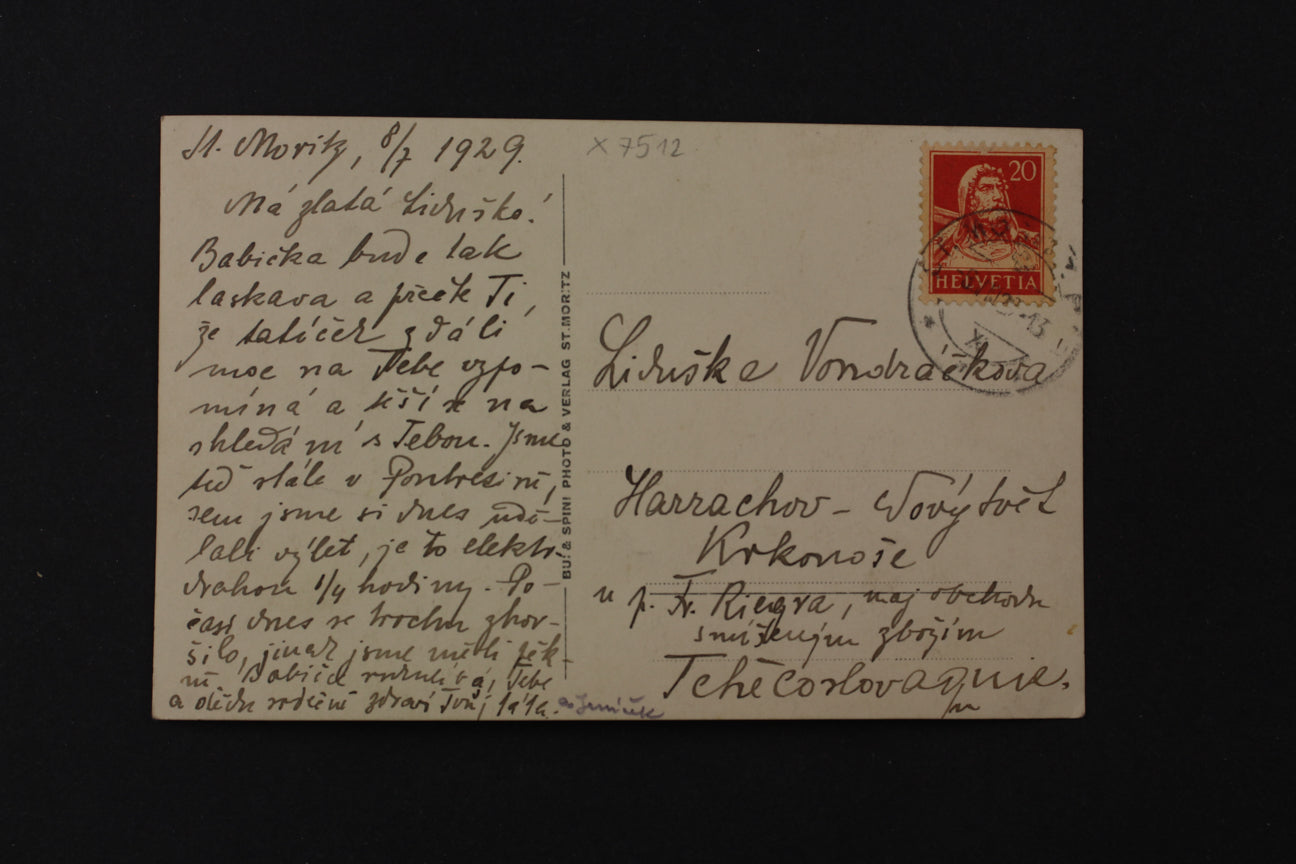 St. Moritz, 8/7 1929.
Má zlatá Liduško!
Babička bude tak
laskava a přečte Ti,
že tatíček z dáli
moc na Tebe vzpo-
míná a těší se na
shledání s Tebou. Jsme
teď stále v Pontresině,
sem jsme si dnes udě-
lali výlet, je to elektr.
drahou 1/4 hodiny. Po-
časí dnes se trochu zhor-
šilo, jinak jsme měli pěk-
né. Babičce rukulíbá, Tebe
a dědu srdečně zdraví Tvůj táta.
a Jeníček
BUI & SPINI PHOTO & VERLAG ST. MORITZ
x 7512
20
HELVETIA
Liduška Vondráčkova
Harrachov - Nový Svět
Krkonoše
u p. Fr. Riegra, maj obchodu
smíšeným zbožím
Tchécoslovaquie.